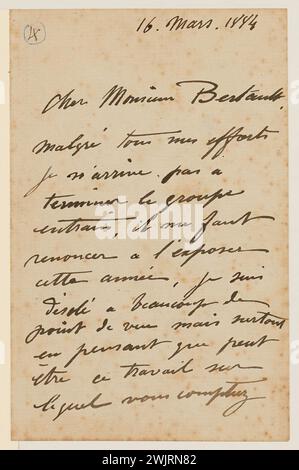 18
16. Mars. 1884
Cher Monsieur Bertault,
malgré tous mes efforts
je n'arrive pas a
terminer le groupe
entrain, il me faut
renoncer a l'exposer
cette année, je suis
désolé a beaucoup de
point de vue mais surtout
en pensant que peut
être ce travail sur
lequel vous comptez
alamy
Image ID: 2WJRN82
www.alamy.com